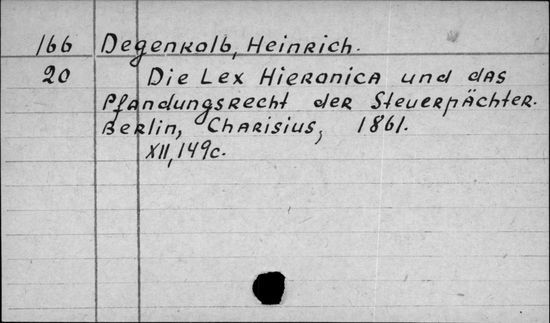 166 Degenkolb, Heinrich.
20 Die Lex Hieronica und das
Pfandungsrecht der Steuerpächter.
Berlin, Charisius, 1861.
XII, 149c.